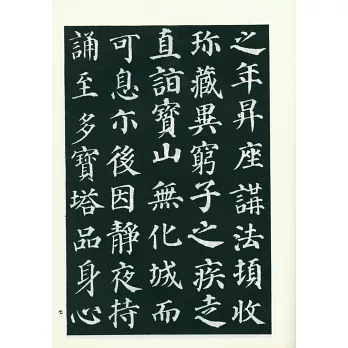 之年昇座講法頓收
珍藏異窮子之疾走
直詣寶山無化城而
可息尒後因靜夜持
誦至多寶塔品身心
七